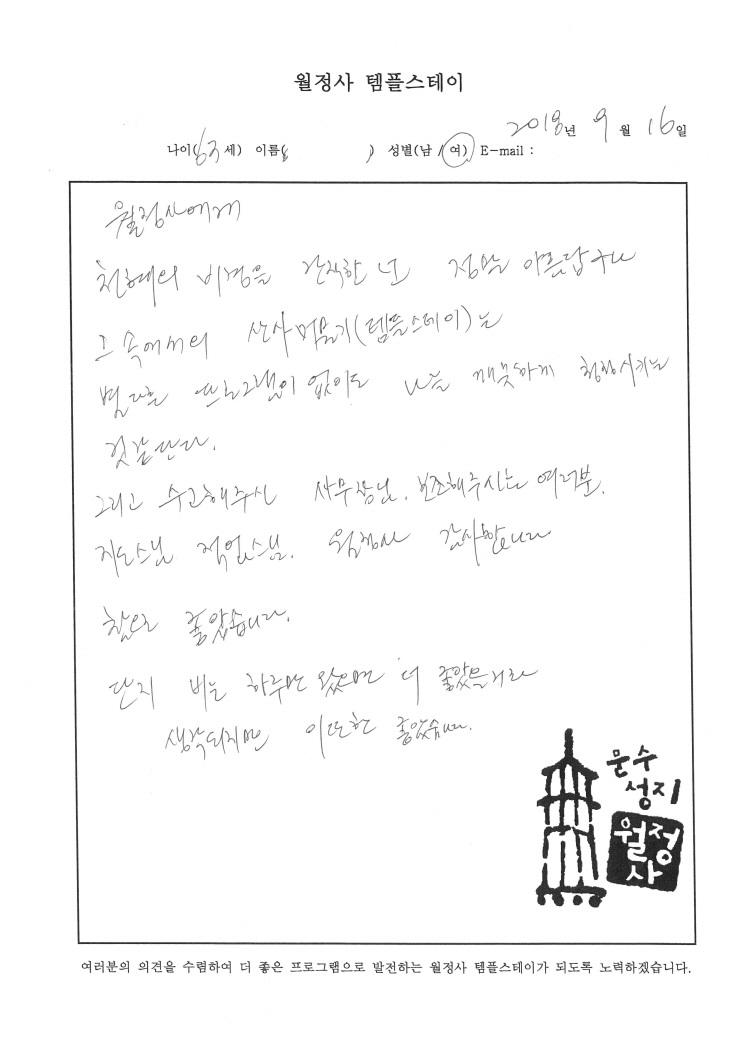 월정사 템플스테이
2018년 9월 16일
나이(63세) 이름( ) 성별(남/여) E-mail :
월정사에게
천혜의 비경을 간직한 너 정말 아름답구나
그 속에서의 산사머물기(템플스테이)는
별다른 프로그램이 없이도 나를 깨끗하게 청정시키는
것같단다.
그리고 수고해주신 사무장님. 보조해주시는 여러분.
지도스님 적엄스님. 월정사 감사합니다
참으로 좋았습니다.
단지 비는 하루만 왔으면 더 좋았을거라
생각되지만 이또한 좋았습니다.
문수
성지
월정
사
여러분의 의견을 수렴하여 더 좋은 프로그램으로 발전하는 월정사 템플스테이가 되도록 노력하겠습니다.